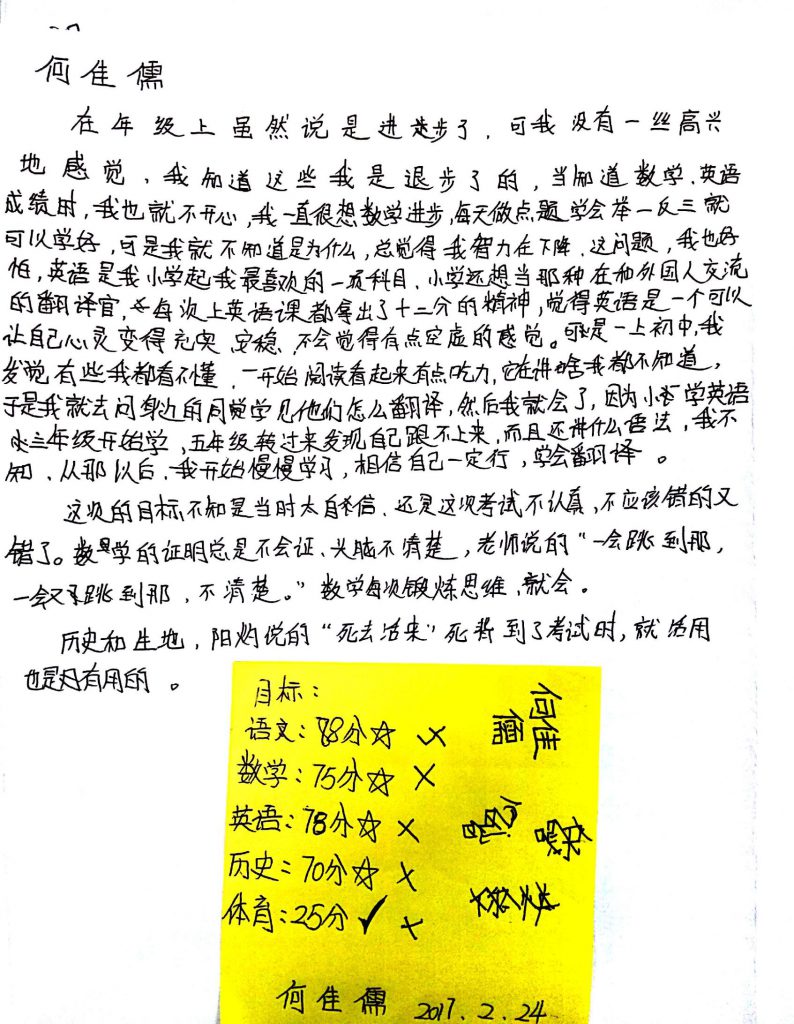 何佳儒
在年级上虽然说是进步了，可我没有一丝高兴
地感觉、我知道这些我是退步了的，当知道数学、英语
成绩时，我也就不开心，我一直很想数学进步，每天做点题，学会举一反三就
可以学好，可是我就不知道是为什么，总觉得我智力在下降、这问题，我也好
怕，英语是我小学起我最喜欢的一项科目、小学还想当那种在和外国人交流
的翻译官，每次上英语课都拿出了十二分的精神，觉得英语是一个可以
让自己心灵变得充实、安稳、不会觉得有点空虚的感觉。可是一上初中，我
发觉有些我都看不懂，一开始阅读看起来有点吃力，它在讲啥我都不知道，
于是我就去问身边的同学见他们怎么翻译，然后我就会了，因为小时学英语
三年级开始学，五年级转过来发现自己跟不上来，而且还讲什么语法，我不
知、从那以后、我开始慢慢学习，相信自己一定行，学会翻译。
这次的目标不知是当时太自信、还是这次考试不认真，不应该错的又
错了。数学的证明总是不会证、头脑不清楚，老师说的“一会跳到那，
一会又跳到那，不清楚。”数学每次锻炼思维，就会。
历史和生地，阳灼说的“死去活来”死背到了考试时，就活用
也是有用的。
目标：
语文：88分☆ ×
数学：75分☆ ×
英语：78分☆ ×
历史：70分☆ ×
体育：25分✓ ×
何佳儒
何佳儒 2017.2.24